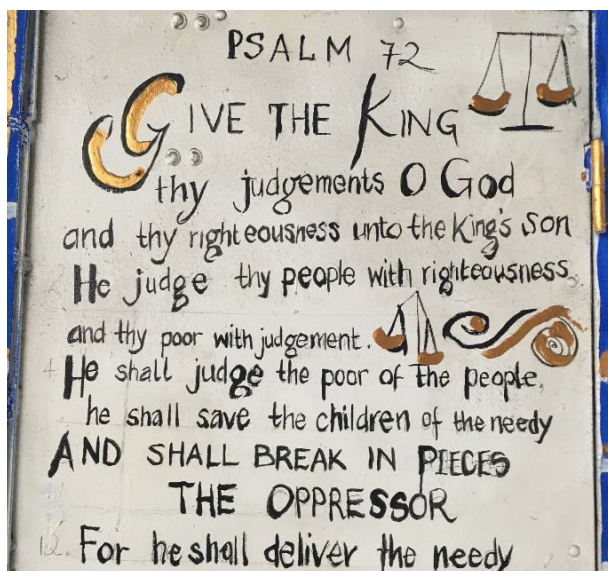 PSALM 72
GIVE THE KING
thy judgements O God
and thy righteousness unto the King's Son
He judge thy people with righteousness
and thy poor with judgement.
4. He shall judge the poor of the people.
he shall save the children of the needy
AND SHALL BREAK IN PIECES
THE OPPRESSOR
12. For he shall deliver the needy